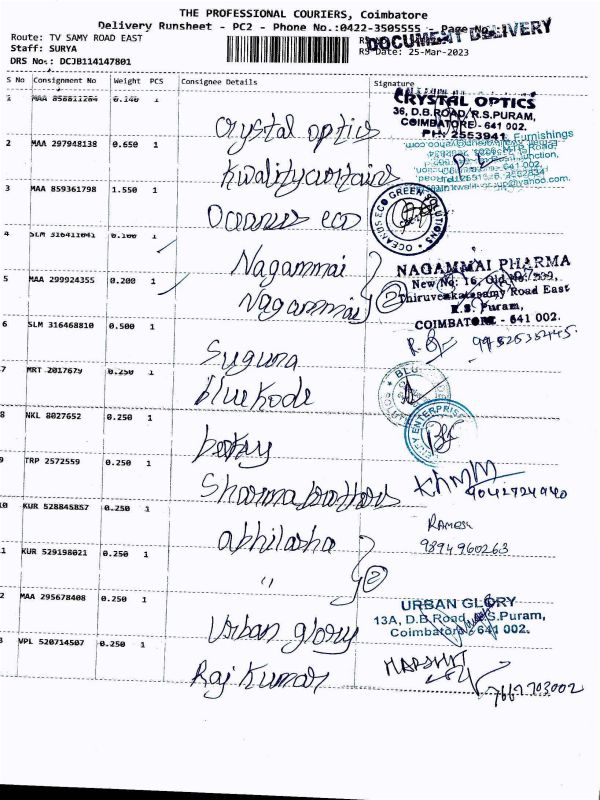 THE PROFESSIONAL COURIERS, Coimbatore
Delivery Runsheet - PC2 - Phone No.:0422-3505555 - Page No
DOCUMENT DELIVERY
Route: TV SAMY ROAD EAST
Staff: SURYA
RS Date: 25-Mar-2023
DRS No.: DCJB114147801
S No Consignment No Weight PCS Consignee Details Signature
1 MAA 858811264 0.140 1
Crystal optics
CRYSTAL OPTICS
36, D.B.ROAD, R.S.PURAM,
COIMBATORE - 641 002.
PH: 2553941
2 MAA 297948138 0.650 1
Kwality curtains
Furnishings
3 MAA 859361798 1.550 1
Oceanus eco
OCEANUS ECO GREEN SOLUTIONS
4 SLM 316411041 0.100 1
Nagammai
NAGAMMAI PHARMA
New No: 16, Old No: 209,
Thiruvenkatasamy Road East
R.S. Puram,
COIMBATORE - 641 002.
5 MAA 299924355 0.200 1
Nagammai
2
6 SLM 316468810 0.500 1
Suguna
7 MRT 2017679 0.250 1
blue Kode
BLU
8 NKL 8027652 0.250 1
ENTERPRISE
9 TRP 2572559 0.250 1
Sharma brothers
9042724940
10 KUR 528845857 0.250 1
abhilasha
Ramesh
9894960263
11 KUR 529198021 0.250 1
"
2
2 MAA 295678408 0.250 1
Urban glory
URBAN GLORY
13A, D.B.Road, R.S.Puram,
Coimbatore - 641 002.
3 VPL 520714507 0.250 1
Raj Kumar
HARSHIT
7667703002